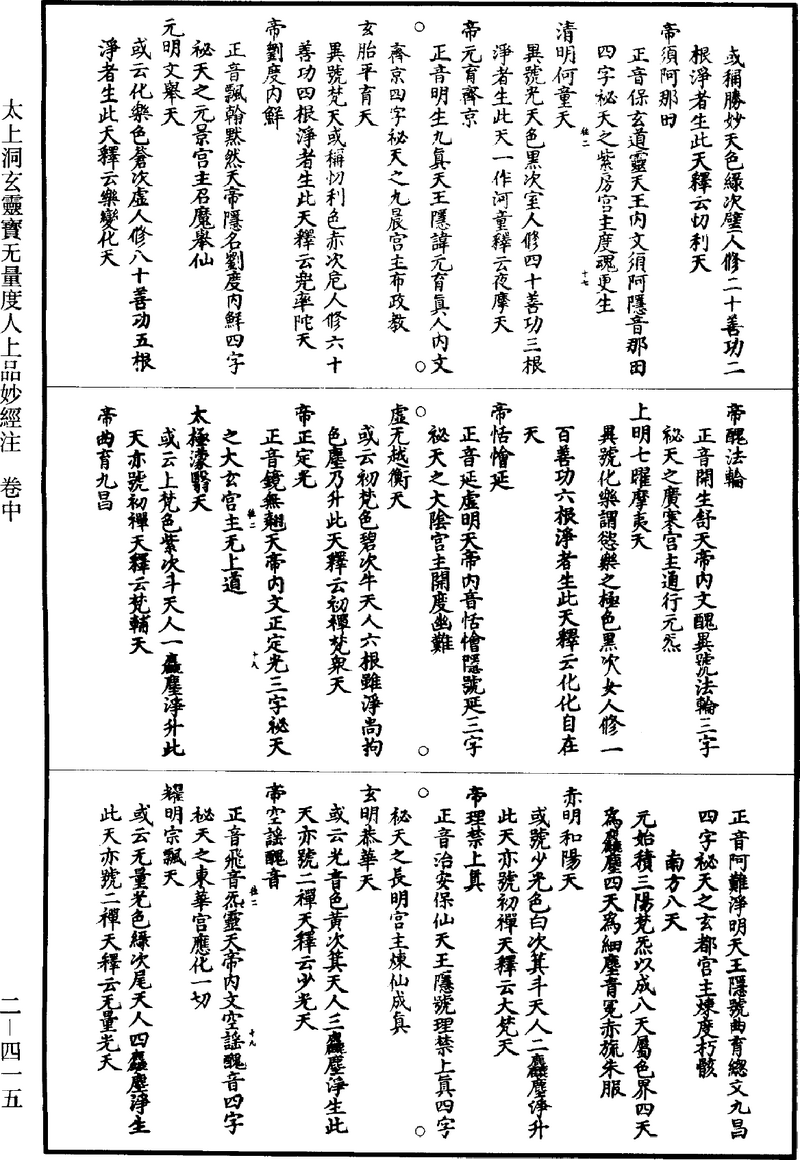 或稱勝妙天色綠次壁人修二十善功二
根淨者生此天釋云忉利天
帝須阿那田
正音保玄道靈天王內文須阿隱音那田
四字祕天之紫房宮主度魂更生
清明何童天
異號光天色黑次室人修四十善功三根
淨者生此天一作河童釋云夜摩天
帝元育齊京
正音明生九真天王隱諱元育真人內文
齊京四字祕天之九晨宮主布政教
玄胎平育天
異號梵天或稱忉利色赤次危人修六十
善功四根淨者生此天釋云兜率陀天
帝劉度內鮮
正音飄翰黙然天帝隱名劉度內鮮四字
祕天之元景宮主召魔舉仙
元明文舉天
或云化樂色蒼次虛人修八十善功五根
淨者生此天釋云樂變化天
帝醜法輪
正音開生舒天帝內文醜異號法輪三字
祕天之廣寒宮主通行元炁
上明七曜摩夷天
異號化樂謂慾樂之極色黑次女人修一
百善功六根淨者生此天釋云化化自在
天
帝恬憺延
正音延虛明天帝內音恬憺隱號延三字
祕天之大陰宮主開度幽難
虛无越衡天
或云初梵色碧次牛天人六根雖淨尚拘
色塵乃升此天釋云初禪梵衆天
帝正定光
正音鏡無翹天帝內文正定光三字祕天
之大玄宮主无上道
太極濛翳天
或云上梵色紫次斗天人一麤塵淨升此
天亦號初禪天釋云梵輔天
帝曲育九昌
正音阿難淨明天王隱號曲育總文九昌
四字祕天之玄都宮主煉度朽骸
南方八天
元始積三陽梵炁以成八天屬色界四天
爲麤塵四天爲細塵青冕赤旒朱服
赤明和陽天
或號少光色白次箕斗天人二麤塵淨升
此天亦號初禪天釋云大梵天
帝理禁上真
正音治安保仙天王隱號理禁上真四字
祕天之長明宮主煉仙成真
玄明恭華天
或云光音色黃次箕天人三麤塵淨生此
天亦號二禪天釋云少光天
帝空謠醜音
正音飛音炁靈天帝內文空謠醜音四字
祕天之東華宮應化一切
耀明宗飄天
或云无量光色綠次尾天人四麤塵淨生
此天亦號二禪天釋云无量光天
太上洞玄靈寶无量度人上品妙經注　卷中
二—四一五